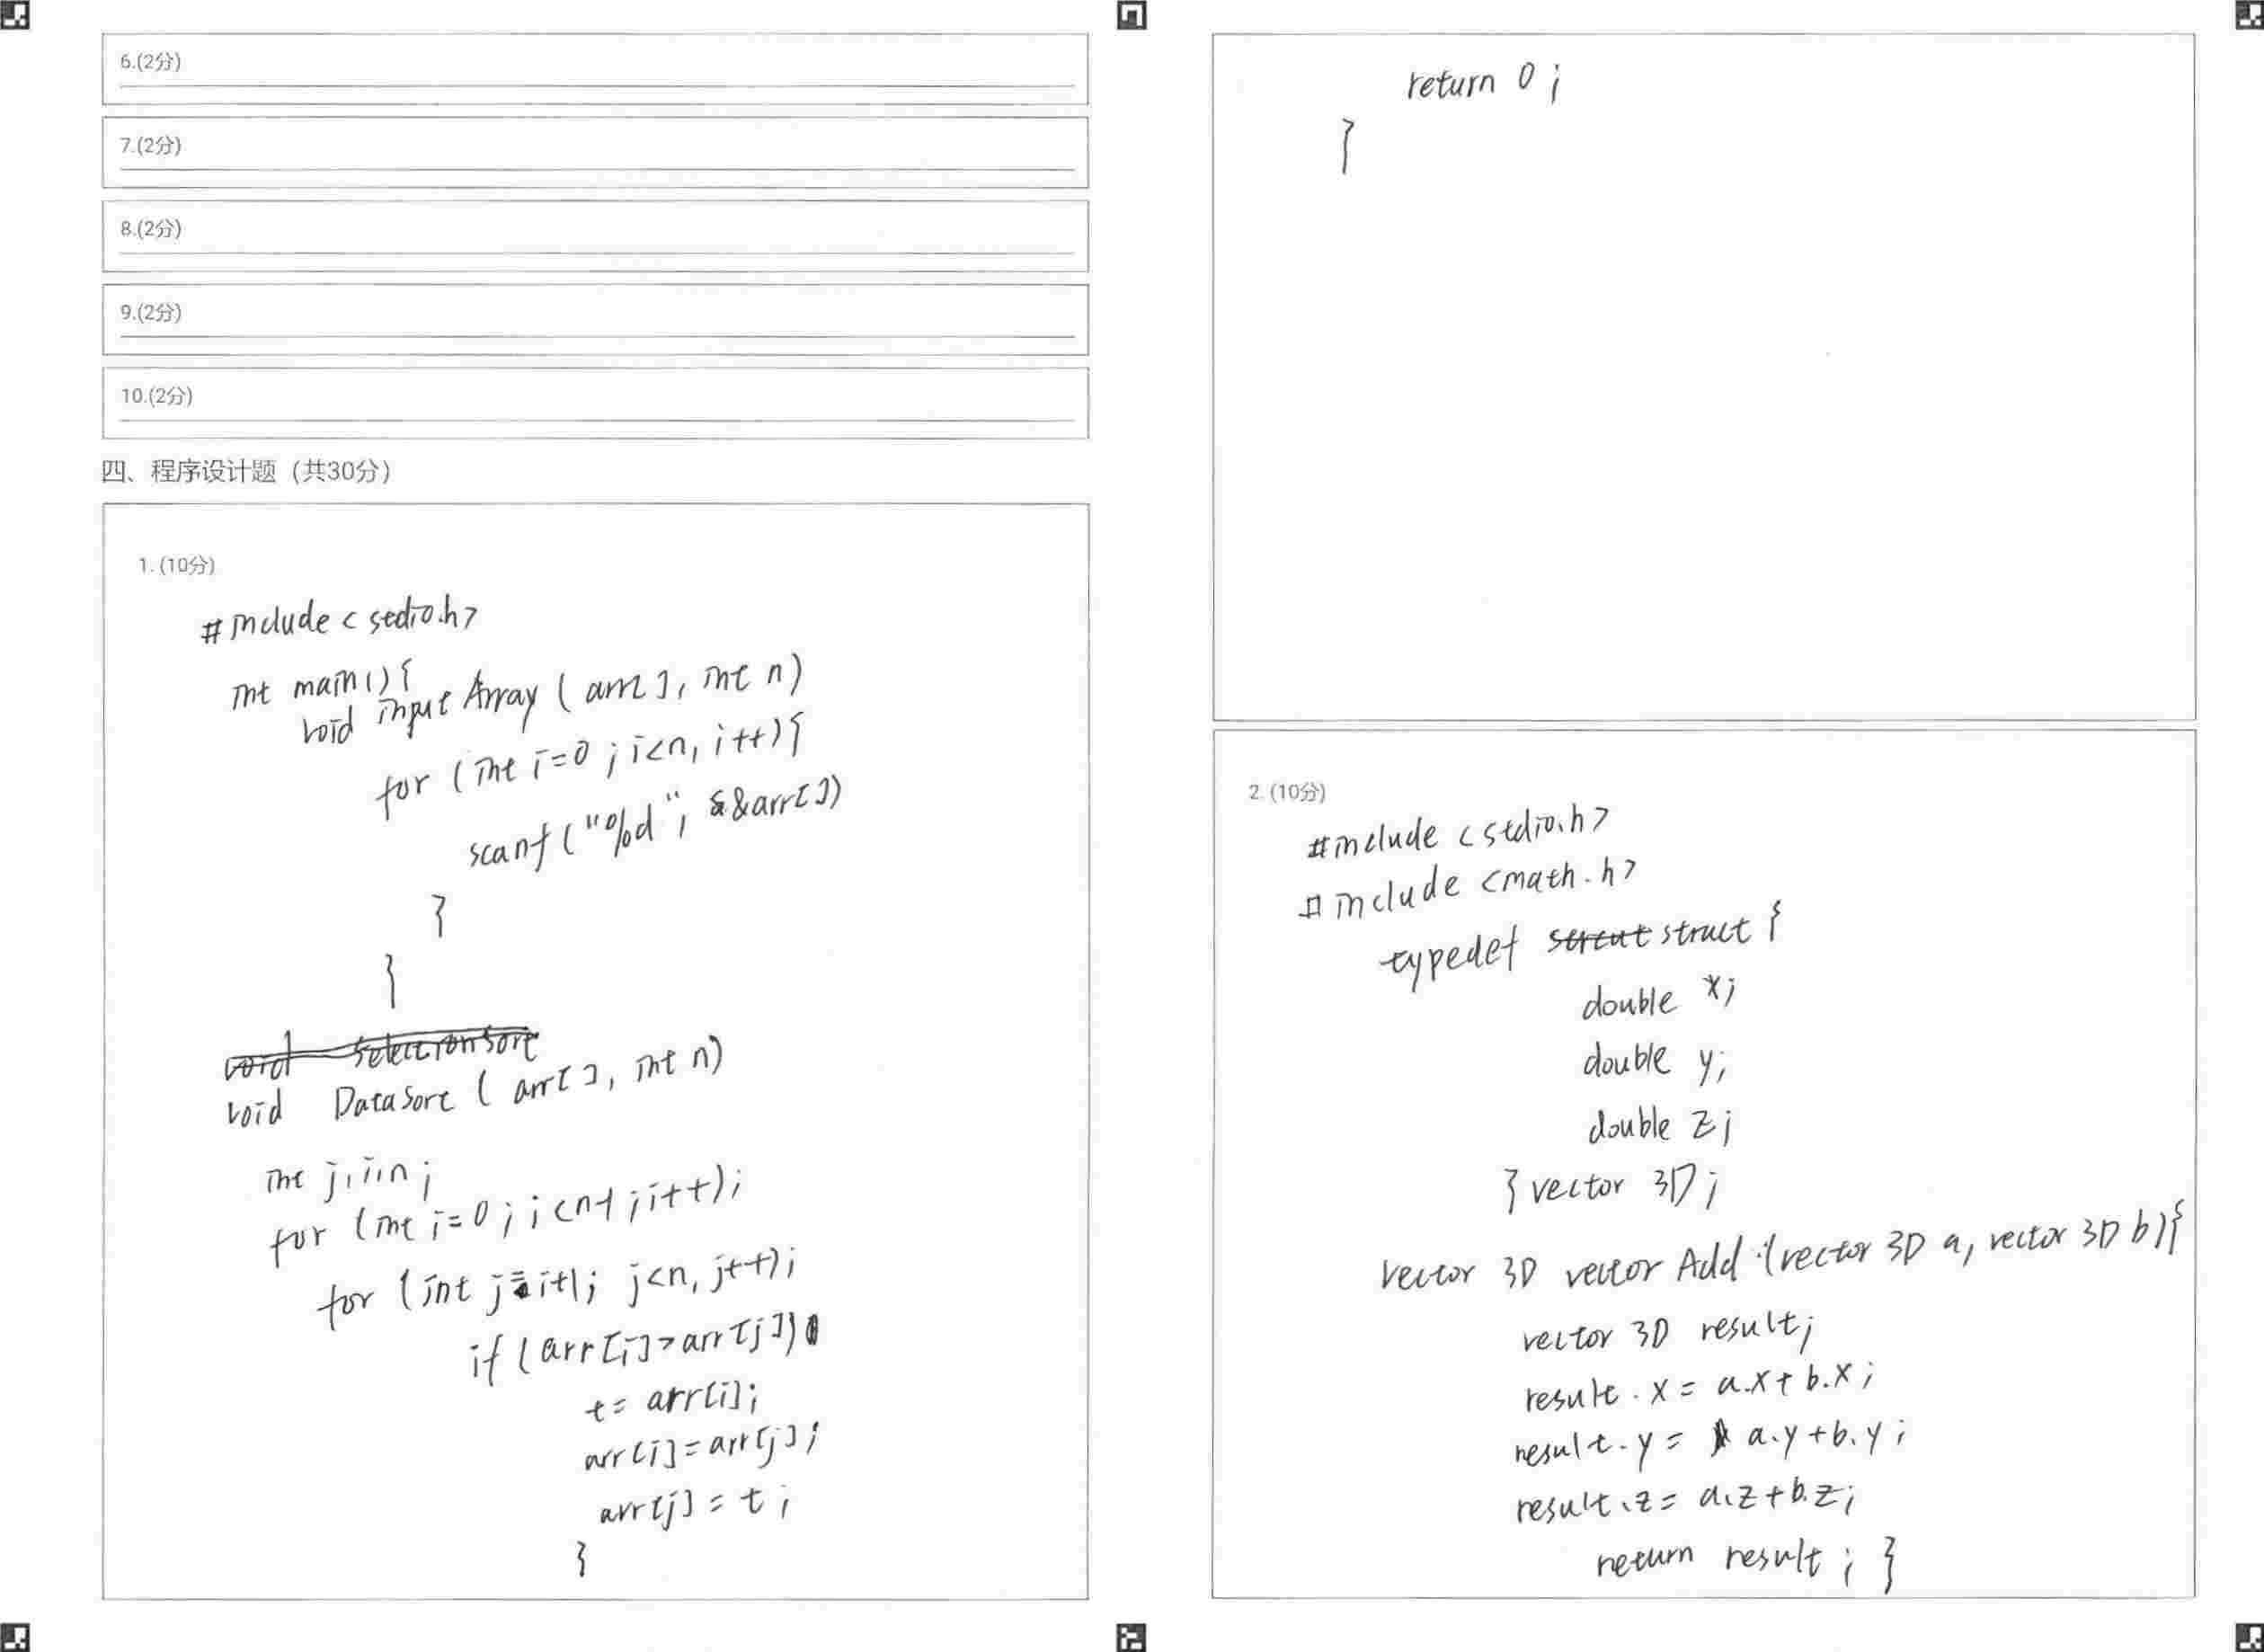 6.(2分)
7.(2分)
8.(2分)
9.(2分)
10.(2分)
四、程序设计题（共30分）
1. (10分)
#include < stdio.h>
int main() {
void input Array ( arr[ ], int n)
for ( int i=0 ; i<n, i++) {
scanf ( "%d" , &&arr[ ])
}
}
void selectionSort
void DataSort ( arr[ ], int n)
int j, i, n ;
for ( int i=0 ; i <n-1 ; i++) ;
for ( int j=i+1 ; j<n, j++) ;
if ( arr[i]>arr[j])
t= arr[i] ;
arr[i]=arr[j] ;
arr[j] = t ;
}
return 0 ;
}
2. (10分)
#include <stdio.h>
#include <math.h>
typedef strcut struct {
double x;
double y;
double z;
} vector 3D ;
vector 3D vector Add (vector 3D a, vector 3D b){
vector 3D result;
result . x = a.x+b.x ;
result . y = a.y+b.y ;
result . z = a.z+b.z ;
return result ; }